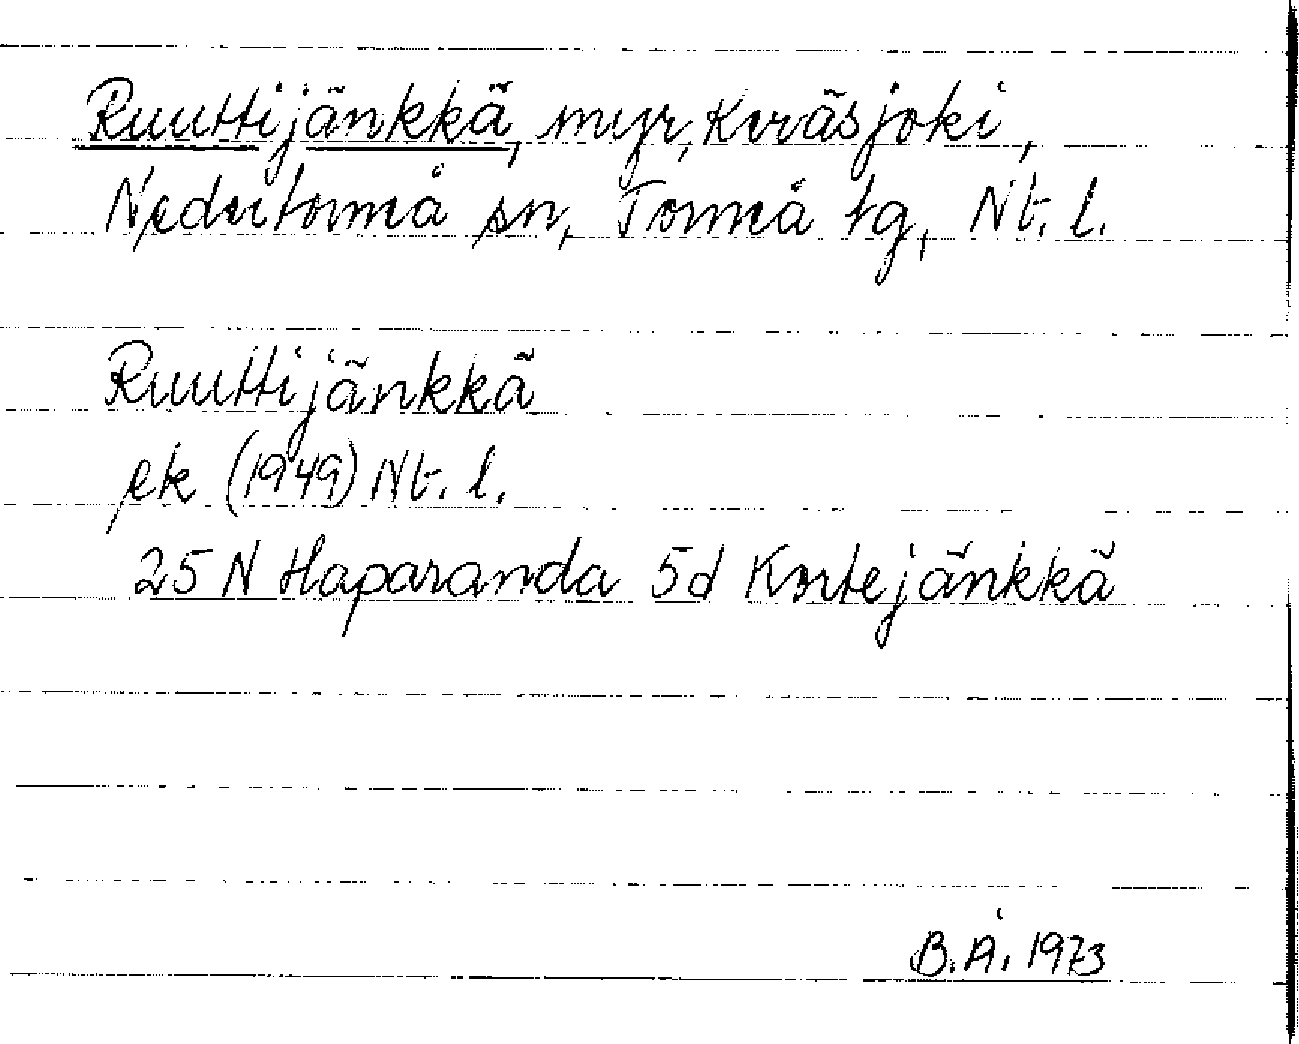 Ruuttijänkkä, myr, Keräsjoki,
Nedertorneå sn, Torneå tg, Nb. l.
Ruuttijänkkä
ek (1949) Nb. l.
25 N Haparanda 5d Kortejänkkä
B.Å. 1973